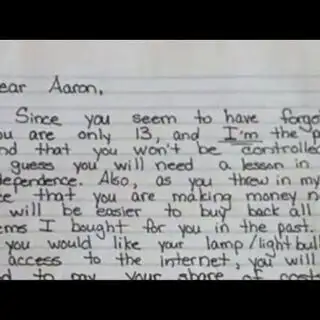 ear Aaron,
Since you seem to have forgo
ou are only 13, and I'm the p
nd that you won't be controlled
guess you will need a lesson in
dependence. Also, as you threw in my
ce that you are making money n
will be easier to buy back all
ems I bought for you in the past.
you would like your lamp/lightbul
access to the internet, you will
d to pay your share of costs